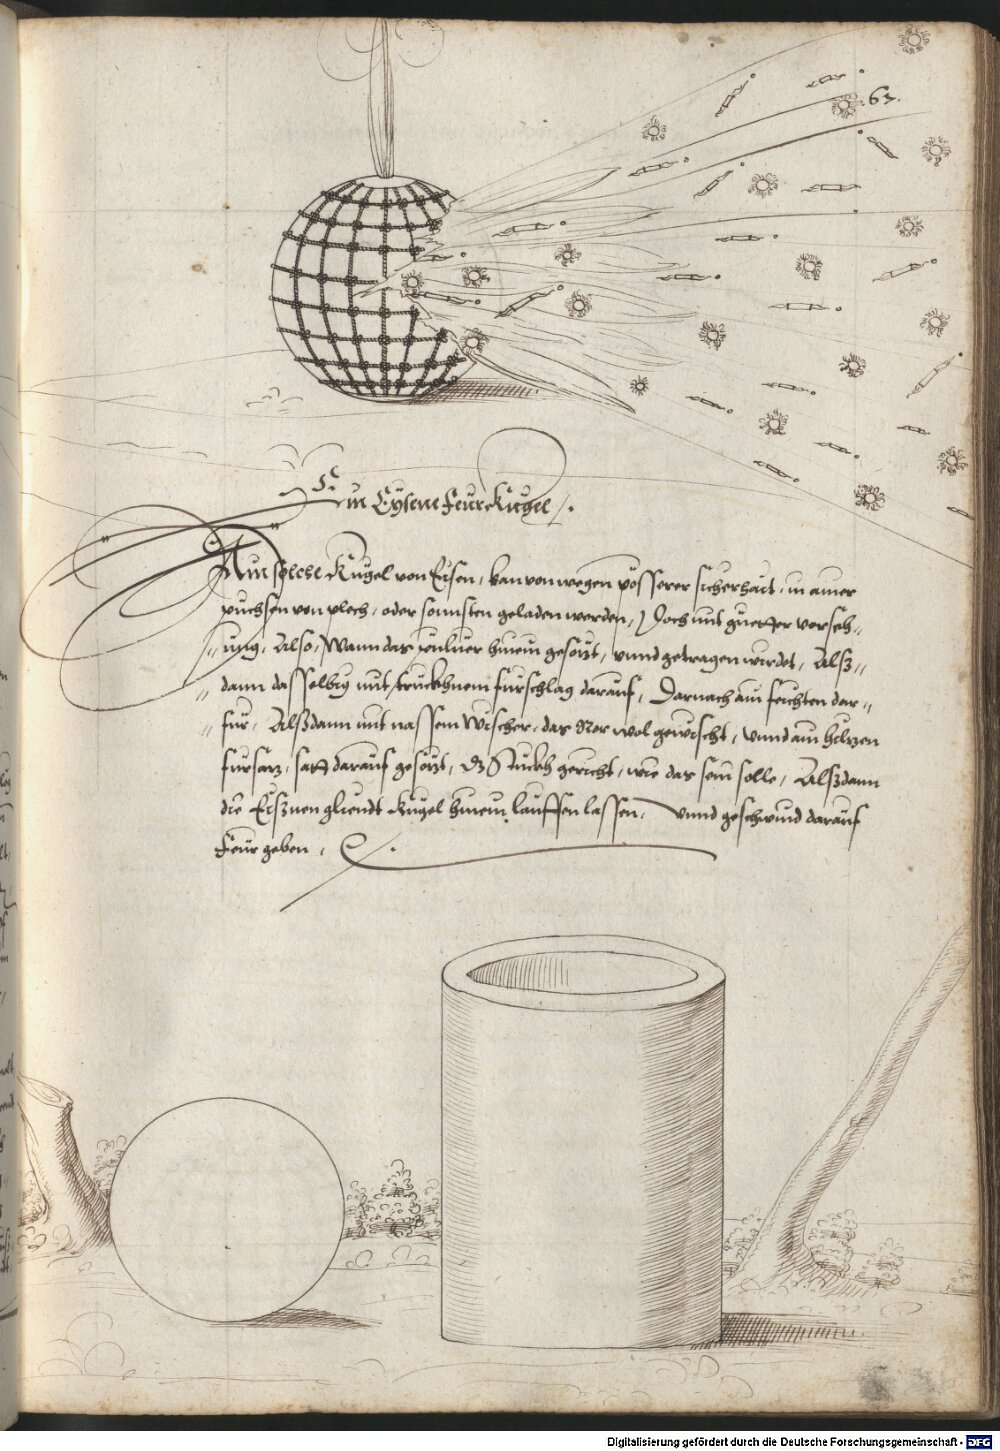 63.
Ein Eysene Feur Kugel /.
Ain solche Kugel von Eisen, kan von wegen pösserer sicherhait, in ainer
puchsen von plech, oder sonnsten geladen werden, Doch mit gueter verseh-
ung, Also, Wann das puluer hinein gesetzt, vnnd getragen wirdet, Alß-
dann dasselbig mit truckhnem fürschlag darauf, Darnach ain feichten dar-
für, Alßdann mit nassem Wischer, das Ror wol gewischt, Vnnd ain hiltzen
fürsatz, satt darauf gesetzt, Dz Stuckh gericht, wie das sein solle, Alßdann
die Eisznen gliendt Kugel hinein lauffen lassen, Vnnd geschwind darauf
Feur geben,
Digitalisierung gefördert durch die Deutsche Forschungsgemeinschaft - DFG